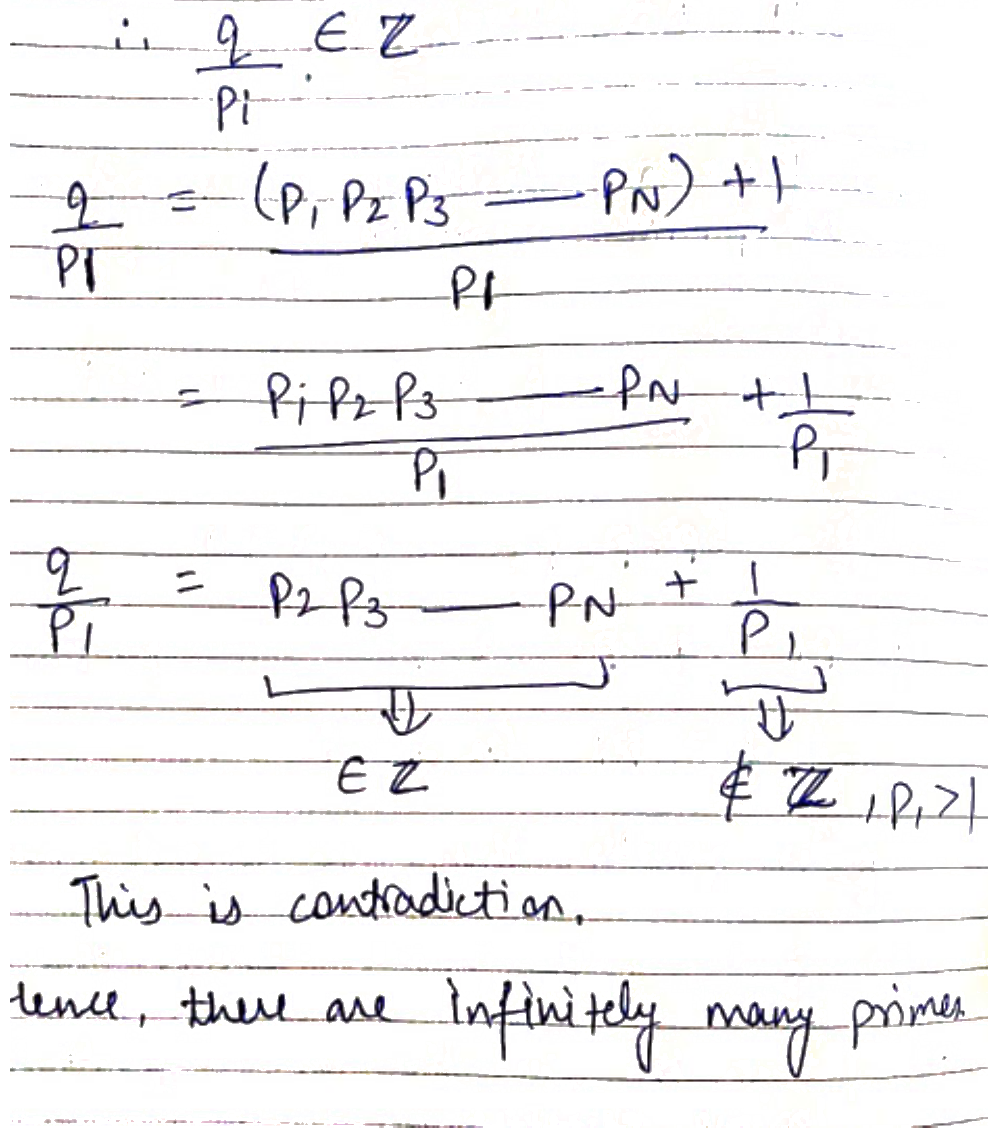 ∴ q/Pi ∈ ℤ
q/P1 = (P1 P2 P3 — PN) + 1 / P1
= Pi P2 P3 — PN / P1 + 1/P1
q/P1 = P2 P3 — PN + 1/P1
⇓ ⇓
∈ ℤ ∉ ℤ, P1>1
This is contradiction.
tence, there are infinitely many primes